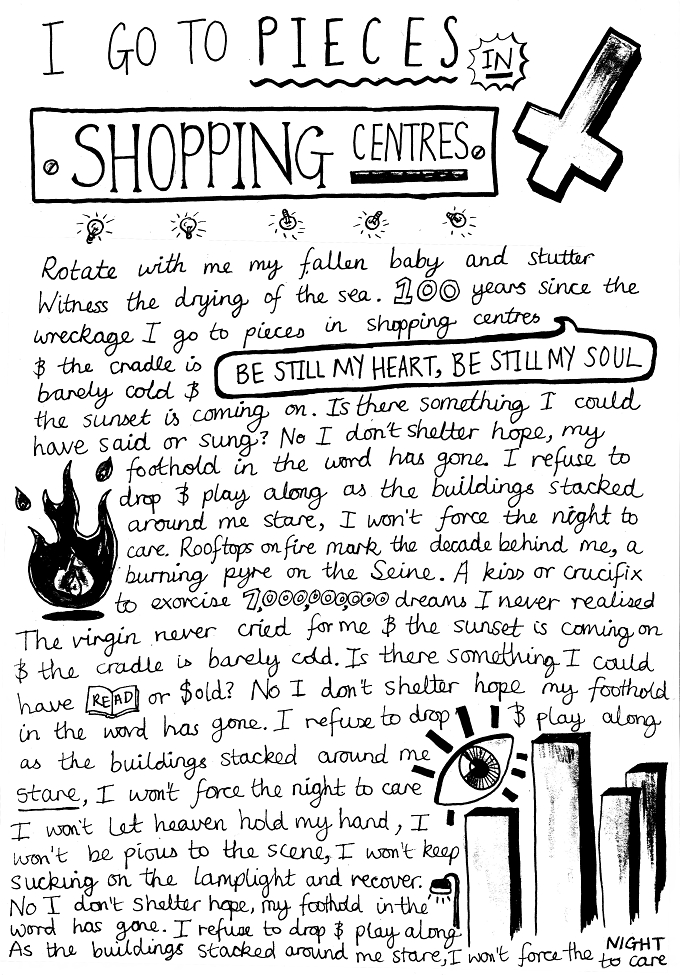 I GO TO PIECES IN
SHOPPING CENTRES
Rotate with me my fallen baby and stutter
Witness the drying of the sea. 100 years since the
wreckage I go to pieces in shopping centres
$ the cradle is
barely cold $
BE STILL MY HEART, BE STILL MY SOUL
the sunset is coming on. Is there something I could
have said or sung? No I don't shelter hope, my
foothold in the word has gone. I refuse to
drop $ play along as the buildings stacked
around me stare, I won't force the night to
care. Rooftops on fire mark the decade behind me, a
burning pyre on the Seine. A kiss or crucifix
to exorcise 7,000,000,000 dreams I never realised
The virgin never cried for me $ the sunset is coming on
$ the cradle is barely cold. Is there something I could
have READ or $old? No I don't shelter hope my foothold
in the word has gone. I refuse to drop $ play along
as the buildings stacked around me
stare, I won't force the night to care
I won't let heaven hold my hand, I
won't be pious to the scene, I won't keep
sucking on the lamplight and recover.
No I don't shelter hope, my foothold in the
word has gone. I refuse to drop $ play along
As the buildings stacked around me stare, I won't force the NIGHT
to care